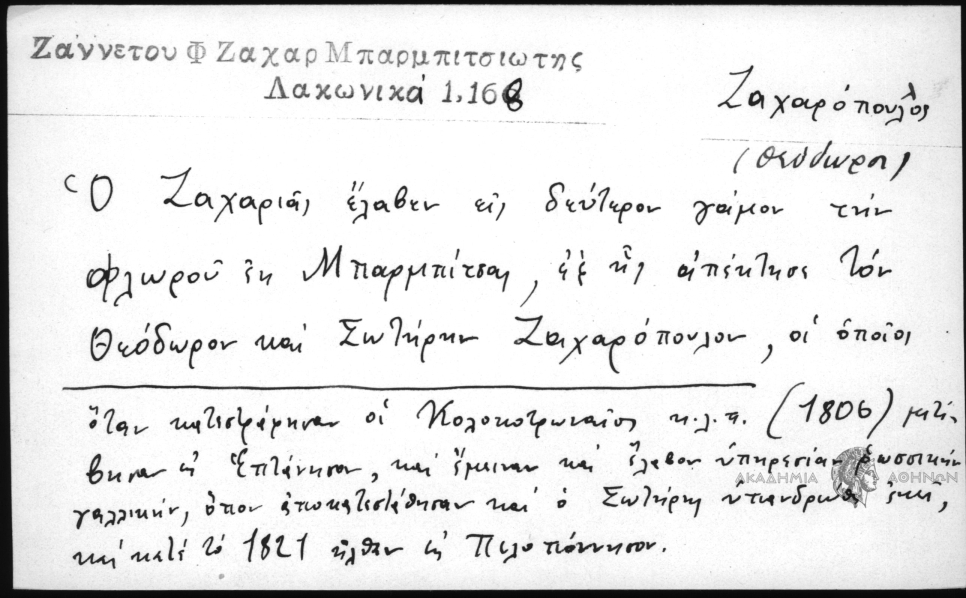 Ζαννετου Φ Ζαχαρ Μπαρμπιτσιωτης
Λακωνικά 1,168
Ζαχαρόπουλος
(Θεόδωρος)
Ὁ Ζαχαριᾶς ἔλαβεν εἰς δεύτερον γάμον τήν
Φλωροῦ ἐκ Μπαρμπίτσας, ἐξ ἧς ἀπέκτησε τόν
Θεόδωρον καί Σωτήρην Ζαχαρόπουλον, οἱ ὁποῖοι
ὅταν κατεστράφησαν οἱ Κολοκοτρωναῖοι κ.λ.π. (1806) μετέ-
βησαν εἰς Ἑπτάνησον, καί ἔμειναν καί ἔλαβον ὑπηρεσίαν ῥωσσικήν
γαλλικήν, ὅπου ἀποκατεστάθησαν καί ὁ Σωτήρης ἐκεῖ,
καί κατά τό 1821 ἦλθον εἰς Πελοπόννησον.
ΑΚΑΔΗΜΙΑ ΑΘΗΝΩΝ